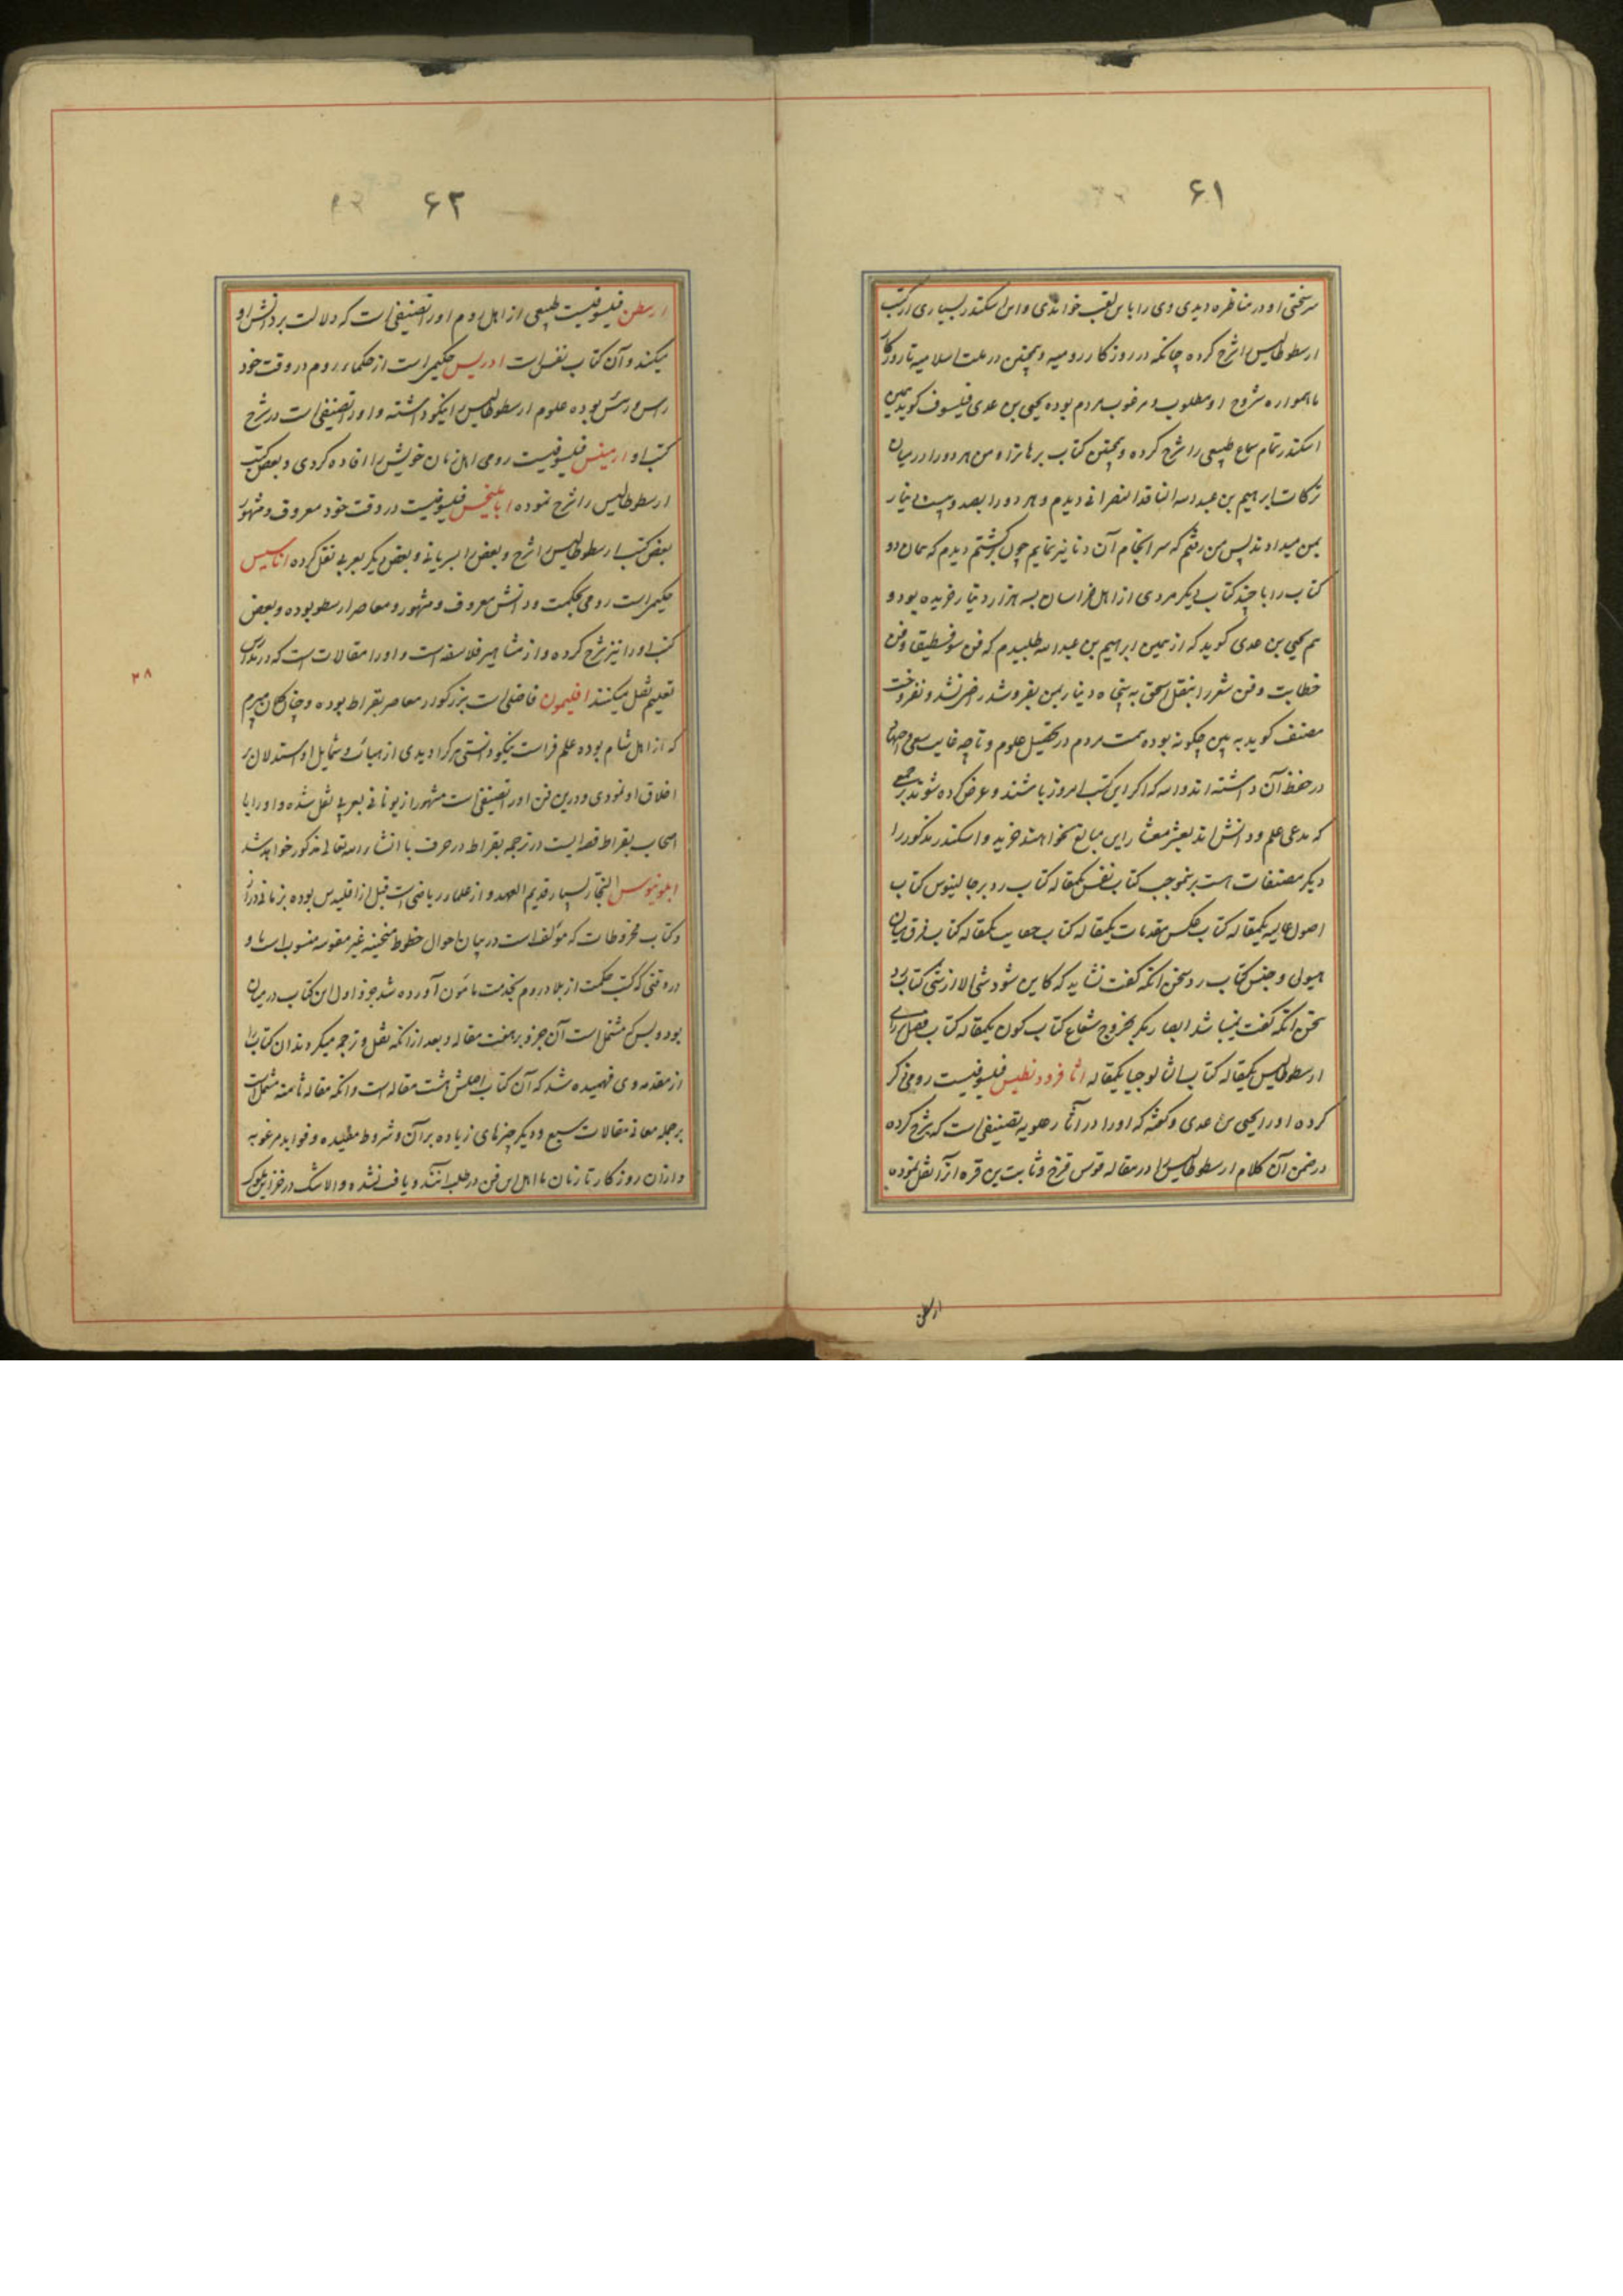 ۶۱
سرسختی او در مناظره دیدی وی را باین لقب خواندی و این اسکندر بسیاری از کتب
ارسطوطالیس را شرح کرده چنانکه در روزگار رومیه و همچنین در ملت اسلامیه تا روزگار
ما همواره شروح او مطلوب و مرغوب مردم بوده یحیی بن عدی فیلسوف گوید همین
اسکندر تمام سماع طبیعی را شرح کرده و همچنین کتاب برهانرا و من هر دو را در میان
ترکات ابراهیم بن عبدالله الناقد النصرانی دیدم و هر دو را بصد و بیست دینار
بمن میدادند پس من رفتم که سرانجام آن دنانیر نمایم چون برگشتم دیدم که همان دو
کتاب را با چند کتاب دیگر مردی از اهل خراسان بسه هزار دینار خریده بود و
هم یحیی بن عدی گوید که از همین ابراهیم بن عبدالله طلبیدم که فن سوفسطیقا و فن
خطابت و فن شعر را بنقل اسحق به پنجاه دینار بمن بفروشد راضی نشد و نفروخت
مصنف گوید به بین چگونه بوده همت مردم در تحصیل علوم و تا چه غایت سعی و اجتهاد
در حفظ آن داشته‌اند والله که اگر این کتب امروز باشند و عرض کرده شوند بر جمعی
که مدعی علم و دانش‌اند بعشر معشار این مبالغ نخواهند خرید و اسکندر مذکور را
دیگر مصنفات هست برینموجب کتاب نفس یکمقاله کتاب رد بر جالینوس کتاب
اصول عالیه یکمقاله کتاب عکس مقدمات یکمقاله کتاب یکمقاله کتاب فرق میان
هیولی و جنس کتاب رد سخن آنکه گفت نشاید که کاین شود شی الا از شی کتاب رد
سخن آنکه گفت نمیباشد ابصار مگر بخروج شعاع کتاب کون یکمقاله کتاب فصل رای
ارسطوطالیس یکمقاله کتاب اثالوجیا یکمقاله اثافرودنطیس فیلسوفیست رومی ذکر
کرده او را یحیی بن عدی و گفته که او را در آثار علویه تصنیفی است که شرح کرده
در ضمن آن کلام ارسطوطالیس را در مقاله قوس قزح و ثابت بن قره آنرا نقل نموده
ارسطن
۶۲
ارسطن فیلسوفیست طبیعی از اهل روم او را تصنیفی است که دلالت بر دانش او
میکند و آن کتاب نفس است ادریس حکیمی است از حکماء روم در وقت خود
رأس و رئیس بوده علوم ارسطوطالیس را نیکو دانسته و او را تصنیفی است در شرح
کتب او ارمینس فیلسوفیست رومی اهل زمان خویش را افاده کردی و بعض کتب
ارسطوطالیس را شرح نموده ابامليخس فیلسوفیست در وقت خود معروف و مشهور
بعض کتب ارسطوطالیس را شرح و بعض را بسریانی و بعض دیگر بعربی نقل کرده اناسیس
حکیمی است رومی بحکمت و دانش معروف و مشهور و معاصر ارسطو بوده و بعض
کتب او را نیز شرح کرده و از مشاهیر فلاسفه است و او را مقالات است که در مدارس
تعلیم نقل میکنند افلیمون فاضلی است بزرگوار معاصر بقراط بوده و چنان گمان میبرم
که از اهل شام بوده علم فراست نیکو دانستی هر کرا دیدی از هیأت و شمایل او استدلال بر
اخلاق او نمودی و درین فن او را تصنیفی است مشهور از یونانی بعربی نقل شده و او را با
اصحاب بقراط قصه‌ایست در ترجمه بقراط در حرف با انشاء الله تعالی مذکور خواهد شد
ابلونیوس النجار بسیار قدیم العهد و از علماء ریاضی است قبل از اقلیدس بوده بزمانی دراز
و کتاب مخروطات که مؤلفه است در بیان احوال خطوط منحنیه غیر مقوسه منسوب است باو
در وقتی که کتب حکمت از بلاد روم بخدمت مأمون آورده شد جزو اول این کتاب در میان
بود و بس که مشتمل است آن جزو بر هفت مقاله و بعد از آنکه نقل و ترجمه میکردند آن کتاب را
از مقدمه وی فهمیده شد که آن کتاب اصلش هشت مقاله است و آنکه مقاله ثامنه مشتمل است
بر جمله معانی مقالات سبع و دیگر چیزهای زیاده بر آن و شروط مفیده و فواید مرغوبه
و از آن روزگار تا زمان ما اهل این فن در طلب آنند و یافت نشده و لاشک در خزاین ملوک
۲۸